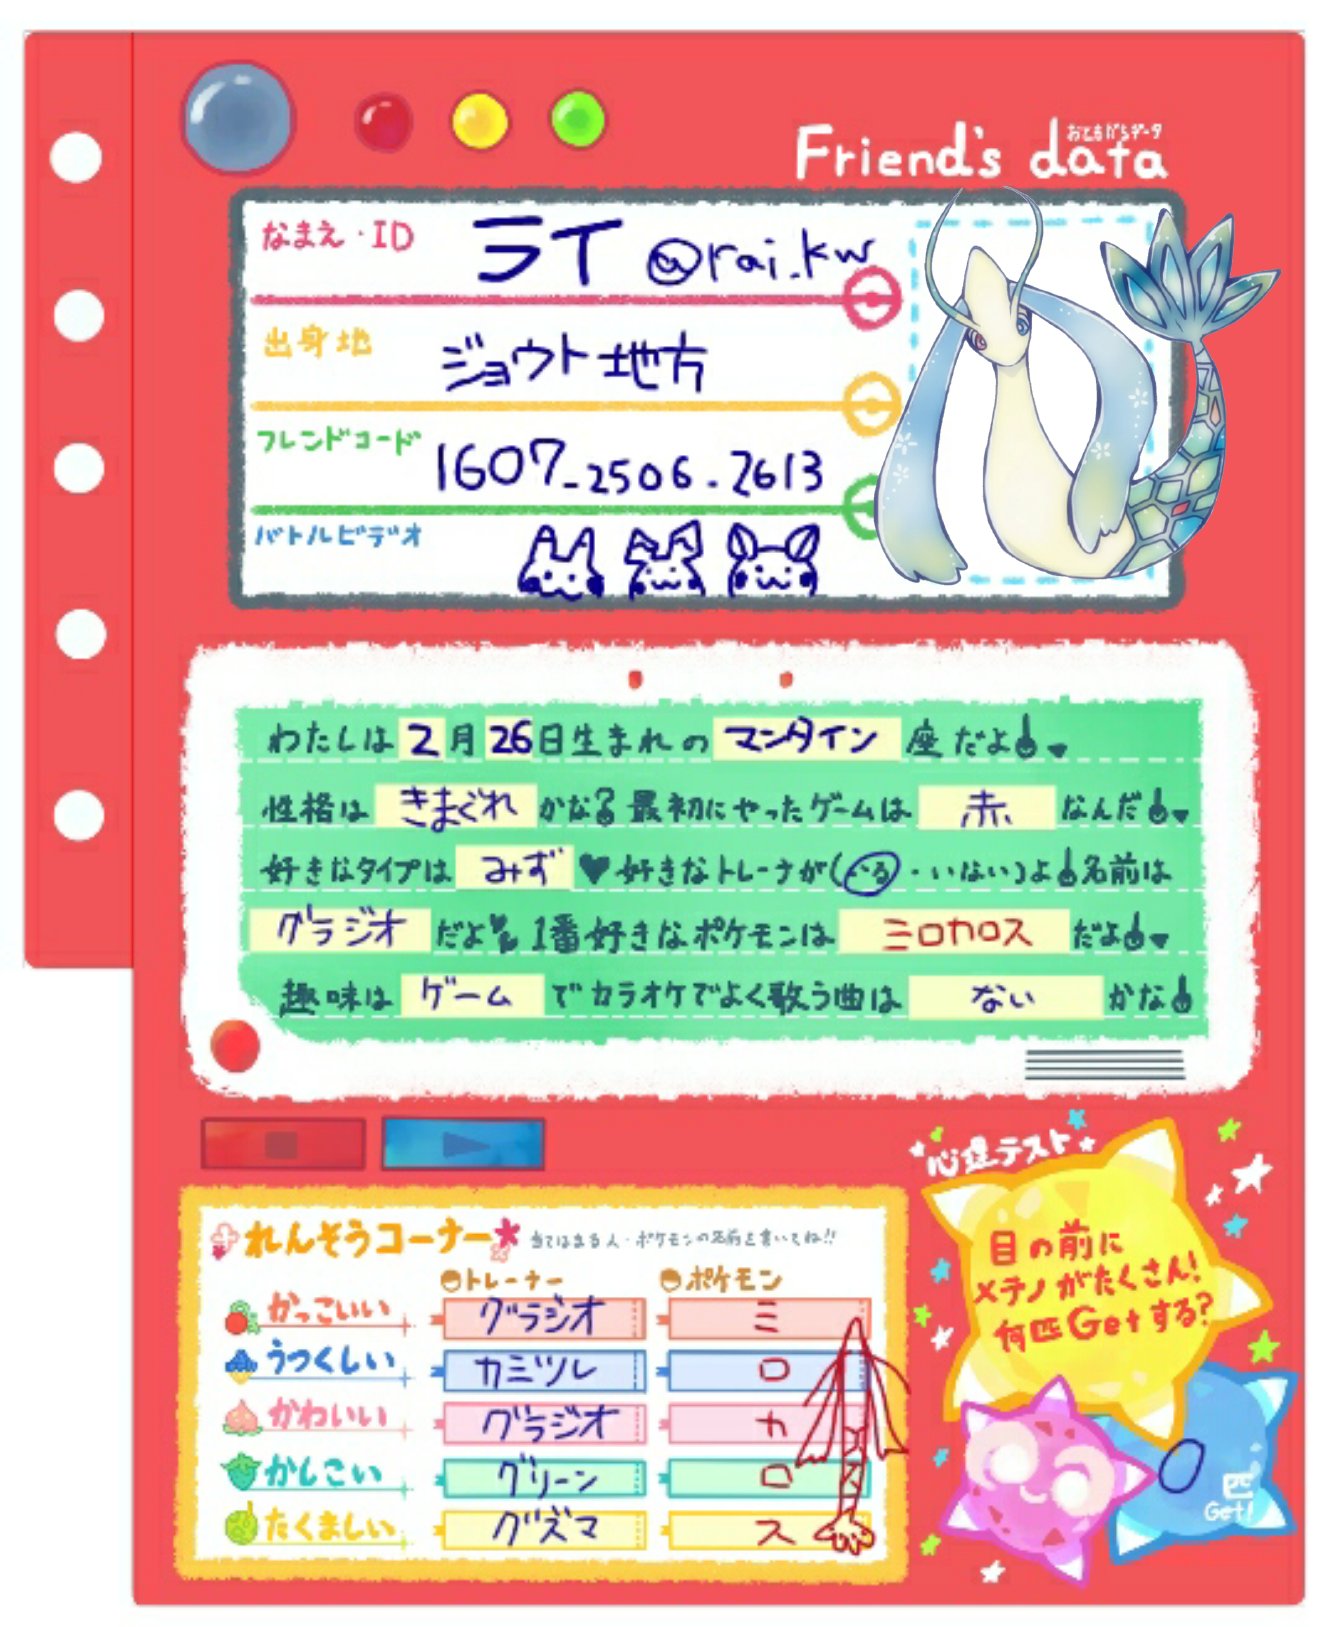 おともだちデータ
Friend's data
なまえ・ID ライ @rai_kw
出身地 ジョウト地方
フレンドコード 1607-2506-2613
バトルビデオ
わたしは2月26日生まれのマンタイン座だよ!
性格はきまぐれかな?最初にやったゲームは赤なんだ!
好きなタイプはみず♥好きなトレーナーが(いる・いない)よ!名前は
グラジオだよ!1番好きなポケモンはミロカロスだよ!
趣味はゲームでカラオケでよく歌う曲はないかな!
心理テスト
れんそうコーナー 当てはまる人・ポケモンの名前を書いてね!!
トレーナー ポケモン
かっこいい グラジオ ミ
うつくしい カミツレ ロ
かわいい グラジオ カ
かしこい グリーン ロ
たくましい グズマ ス
目の前に
メテノがたくさん!
何匹Getする?
0匹
Get!